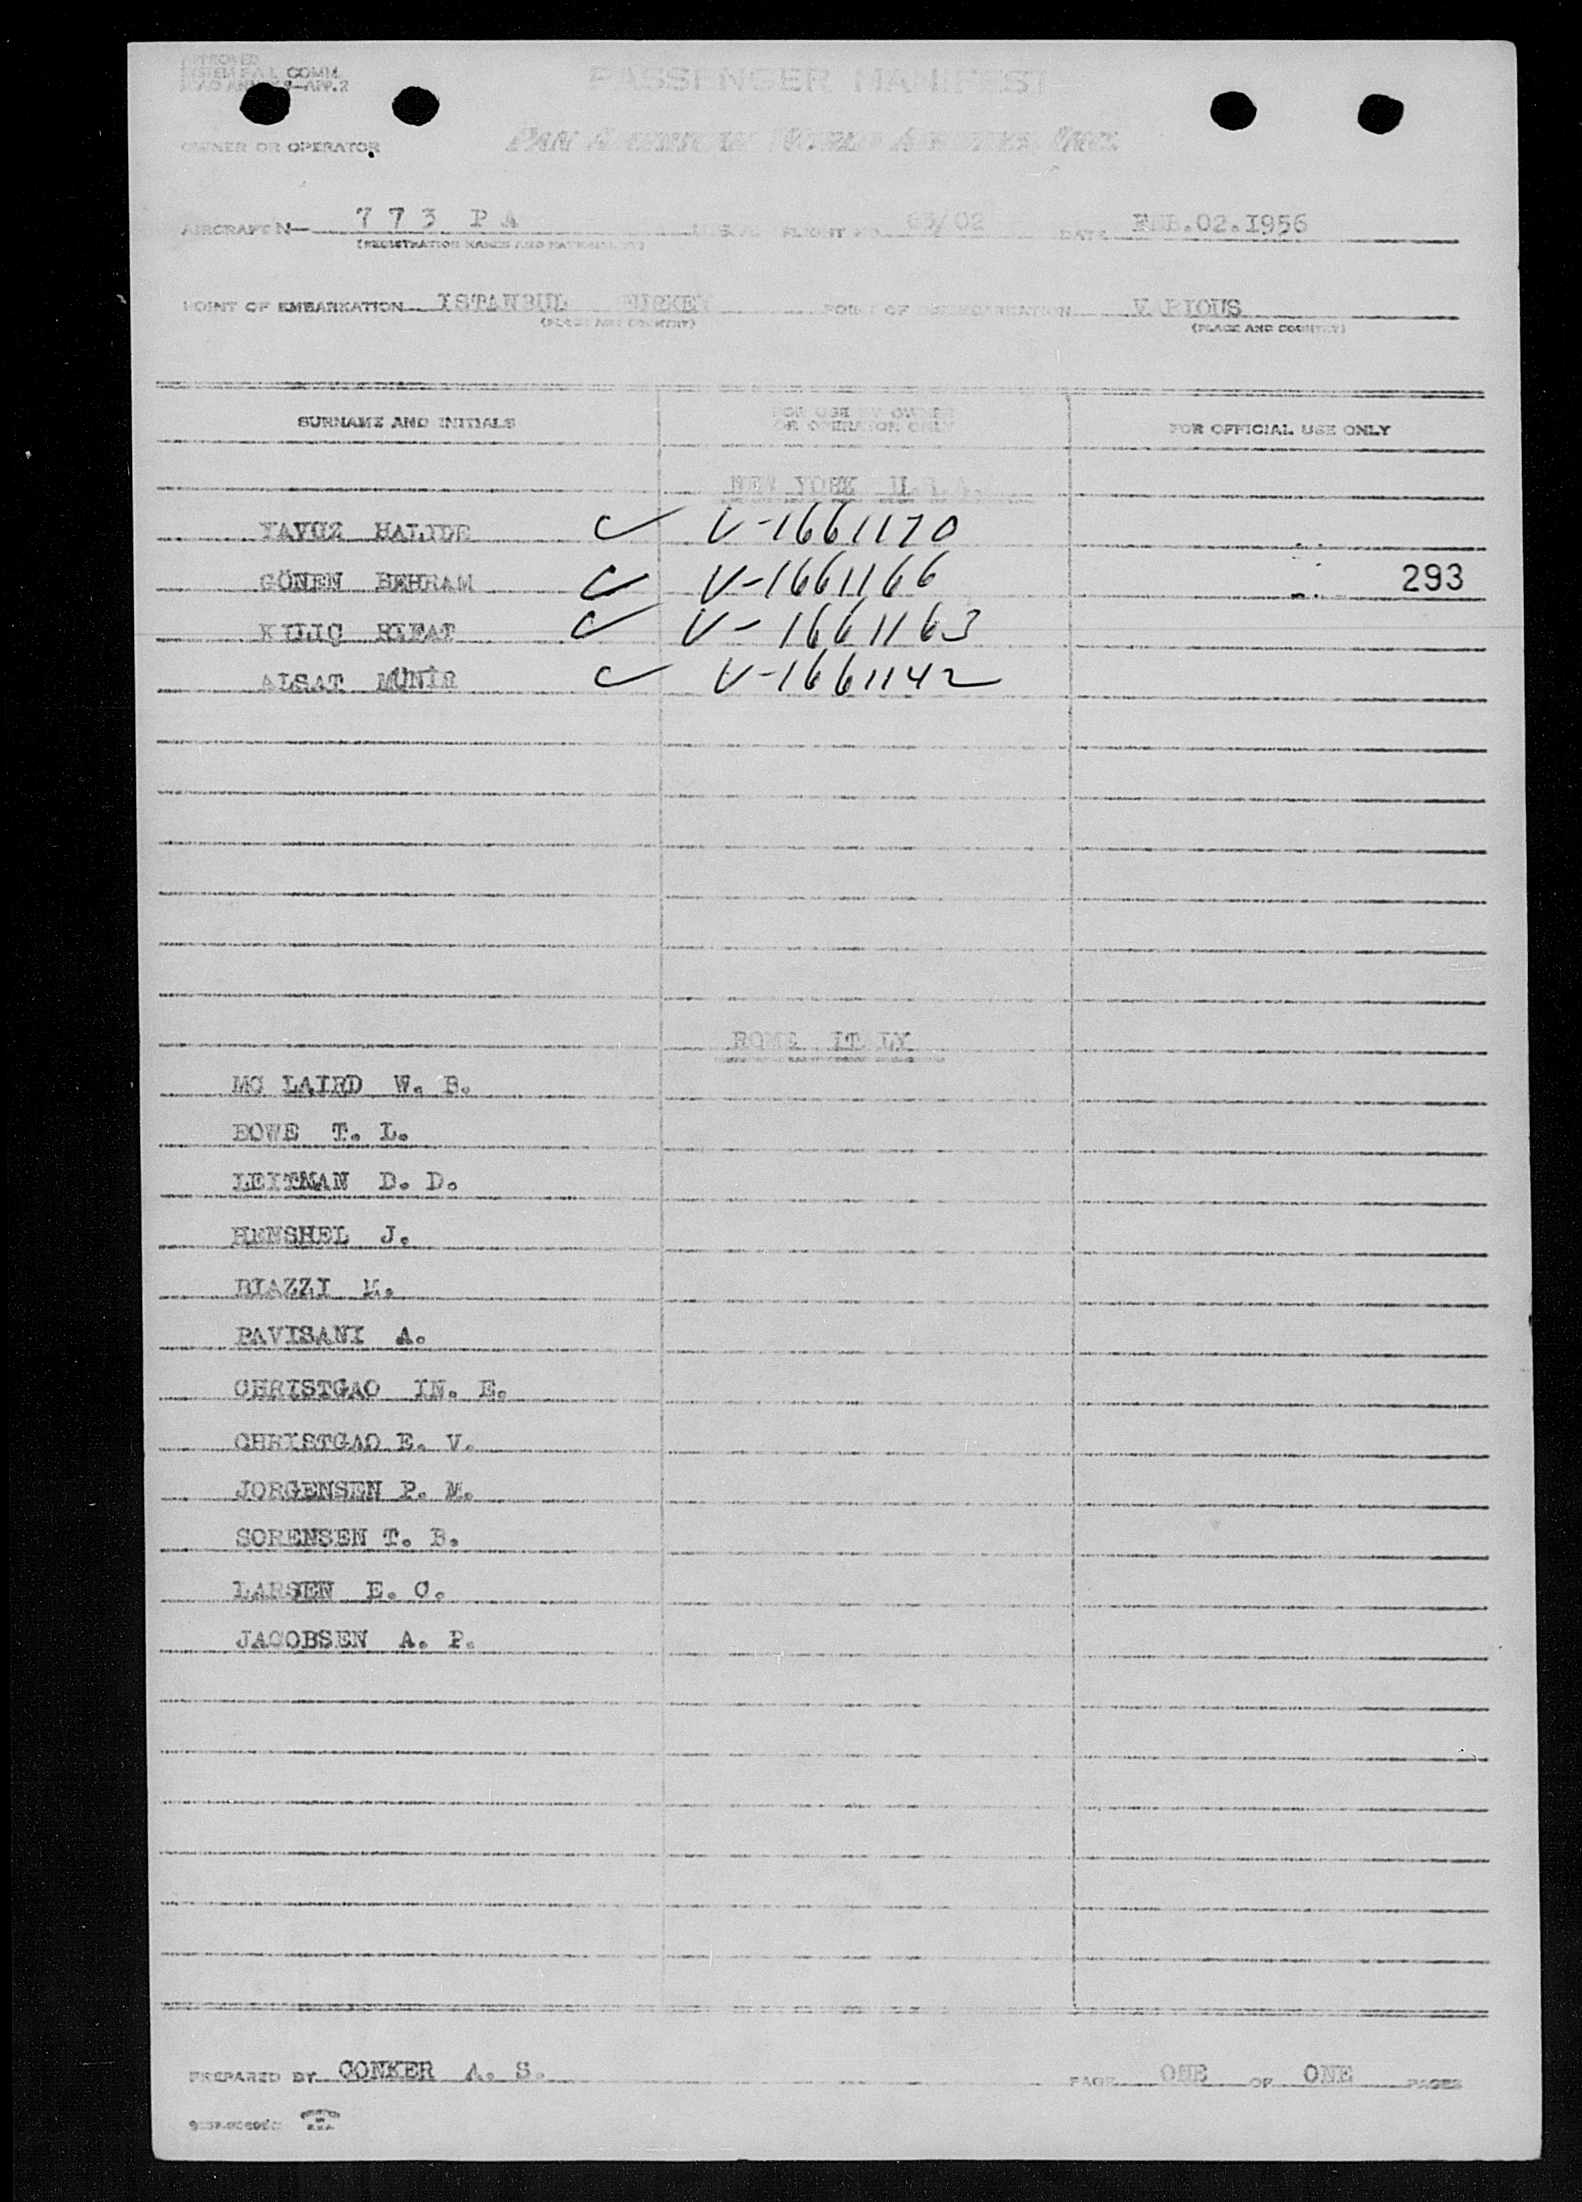 APPROVED
SYSTEM F.A.L. COMM.
ICAO ANNEX 9—APP. 2
PASSENGER MANIFEST
OWNER OR OPERATOR PAN AMERICAN WORLD AIRWAYS, INC.
AIRCRAFT N— 773 PA U.S.A. FLIGHT NO. 63/02 DATE FEB.02.1956
(REGISTRATION MARKS AND NATIONALITY)
POINT OF EMBARKATION ISTANBUL TURKEY POINT OF DISEMBARKATION VARIOUS
(PLACE AND COUNTRY) (PLACE AND COUNTRY)
SURNAME AND INITIALS FOR USE BY OWNER OR OPERATOR ONLY FOR OFFICIAL USE ONLY
NEW YORK U.S.A.
YAVUZ HALIDE V-1661170
GÖNEN BEHRAM V-1661166 293
KILIÇ RIFAT V-1661163
ALSAT MÜNİR V-1661142
ROME ITALY
MC LAIRD W. B.
BOWE T. L.
LEITMAN D. D.
HENSHEL J.
BIAZZI M.
PAVISANI A.
CHRISTGAO IN. E.
CHRISTGAO E. V.
JORGENSEN P. M.
SORENSEN T. B.
LARSEN E. C.
JACOBSEN A. P.
PREPARED BY CONKER A. S. PAGE ONE OF ONE PAGES
PRINTED IN U.S.A.